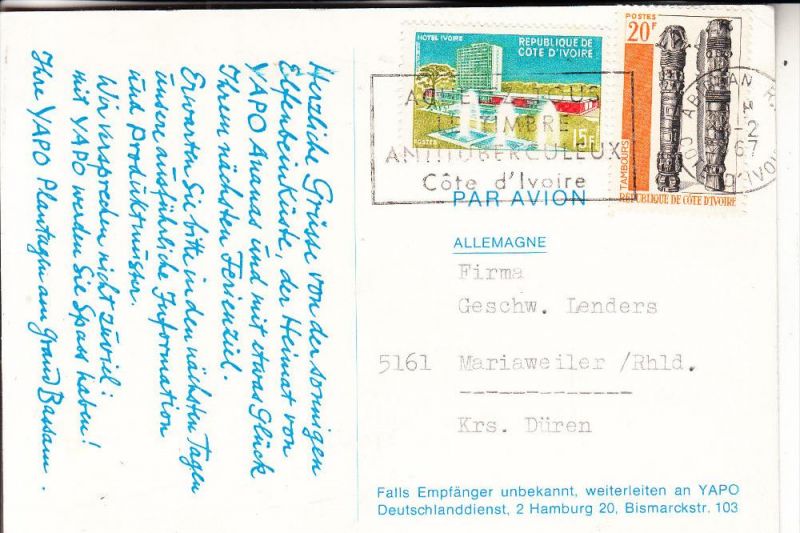 Herzliche Grüsse von der sonnigen
Elfenbeinküste, der Heimat von
YAPO Ananas und mit etwas Glück
Ihrem nächsten Ferienziel.
Erwarten Sie bitte in den nächsten Tagen
unsere ausführliche Information
und Produktmuster.
Wir versprechen nicht zuviel:
mit YAPO werden Sie Spass haben!
Ihre YAPO Plantagen am Grand Bassam.
HOTEL IVOIRE
REPUBLIQUE DE
CÔTE D'IVOIRE
POSTES
15F
POSTES
20F
TAMBOURS
REPUBLIQUE DE CÔTE D'IVOIRE
TIMBRE
ANTITUBERCULEUX
Côte d'Ivoire
ABIDJAN
-2
67
PAR AVION
ALLEMAGNE
Firma
Geschw. Lenders
5161 Mariaweiler /Rhld.
Krs. Düren
Falls Empfänger unbekannt, weiterleiten an YAPO
Deutschlanddienst, 2 Hamburg 20, Bismarckstr. 103